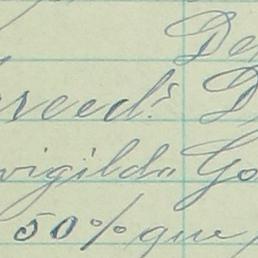 De
reed.s D
wigilda Go
50% que